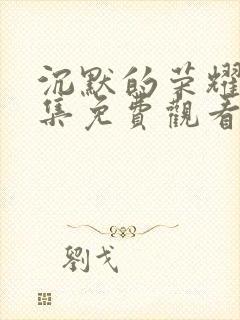 沉默的荣耀
集免費觀看
劉戈